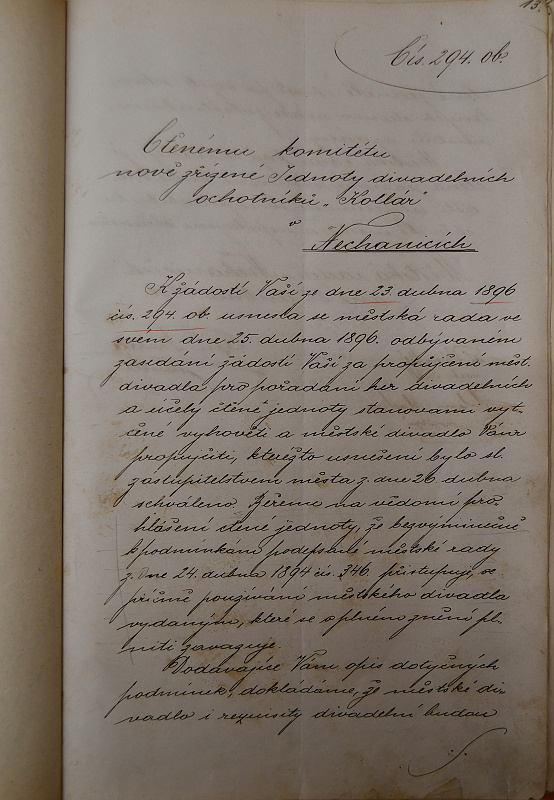 13.
Čís. 294. ob.
Ctěnému komitétu
nově zřízené Jednoty divadelních
ochotníků „Kollár"
v
Nechanicích
K žádosti Vaší ze dne 23 dubna 1896
čís. 294. ob. usnesla se městská rada ve
svém dne 25. dubna 1896. odbývaném
zasedání žádosti Vaší za propůjčení měst.
divadla pro pořádání her divadelních
a účely ctěné jednoty stanovami vyt-
čené vyhověti a městské divadlo Vám
propůjčiti, kteréžto usnešení bylo sl.
zastupitelstvem města z dne 26. dubna
schváleno. Béreme na vědomí pro-
hlášení ctěné jednoty, že bezvýminečně
k podmínkám podepsané městské rady
z dne 24. dubna 1894 čís. 346. přistupuje, se
příčině používání městského divadla
vydaným, které se v plném znění pl-
niti zavazuje.
Dodávajíce Vám opis dotyčných
podmínek, dokládáme, že městské di-
vadlo i requisity divadelní budou